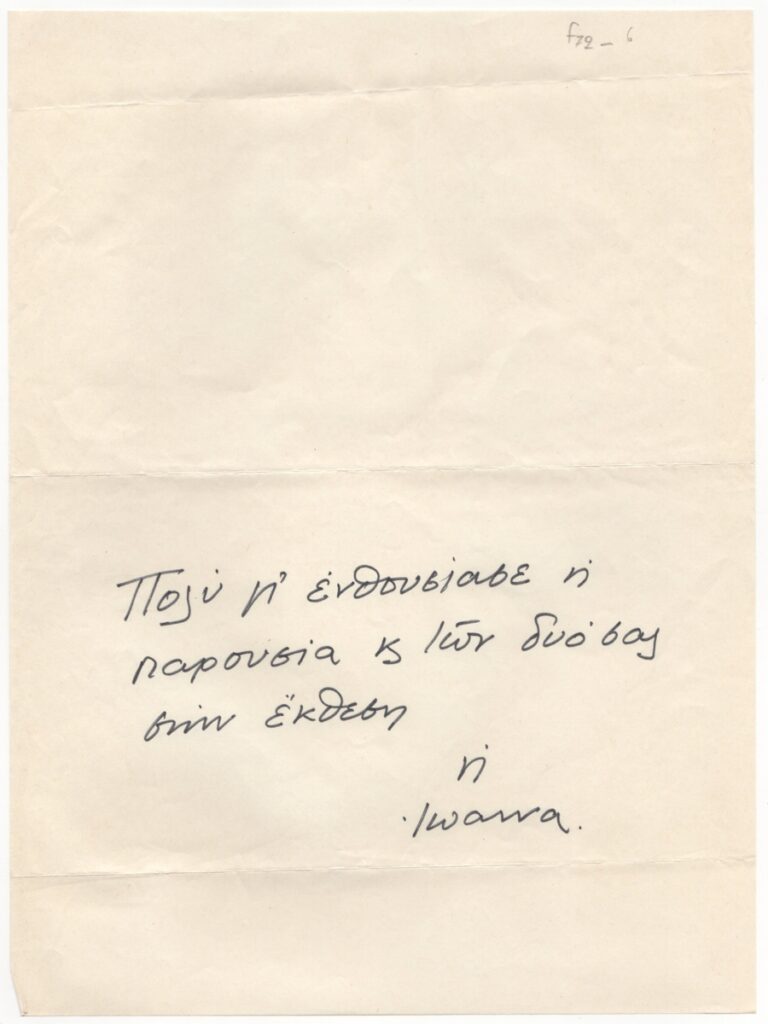 f72 - 6
Πολύ μ' ἐνθουσίασε ἡ
παρουσία κ τῶν δυό σας
στήν ἔκθεση
ἡ
Ἰωαννα.